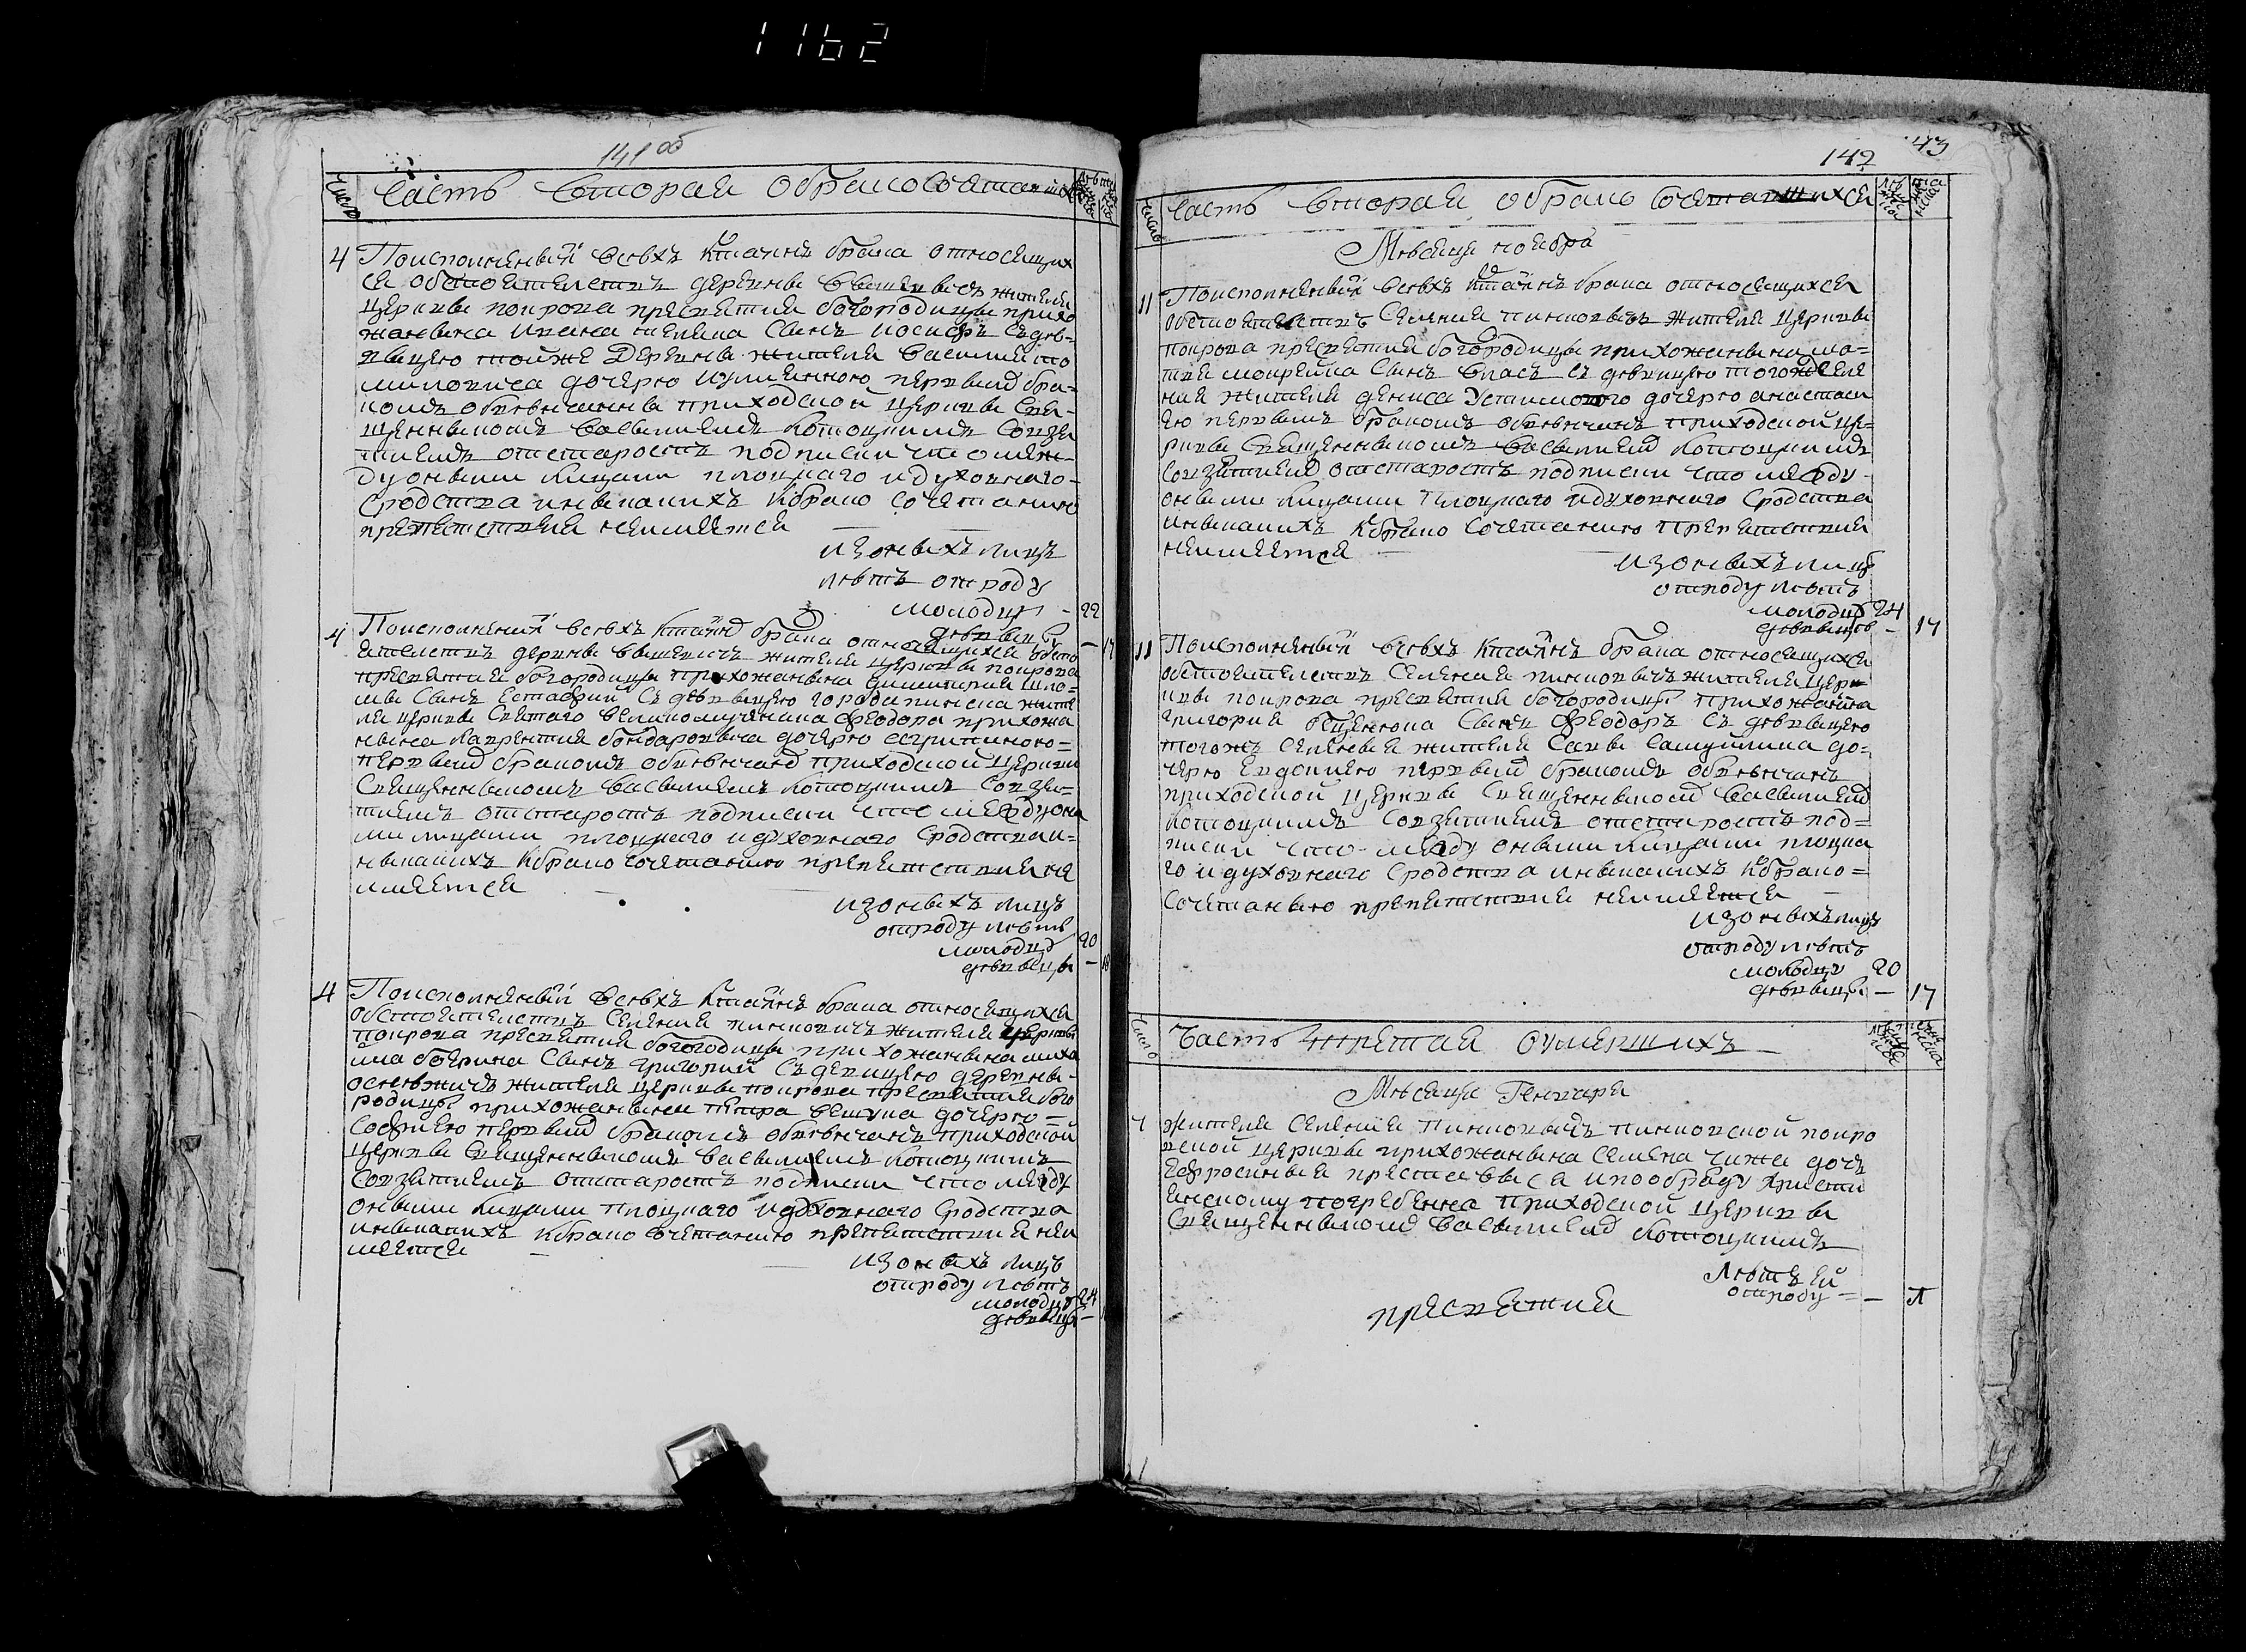 1162
141 об
Число
Часть вторая обракосочетавшихся
4
Поисполнений всехъ ктаинъ брака относящих
ся обстоятелствъ деревни
жителя
церкви покрова пресвятия богородици прихо
жанина Ивана сынъ иосифъ сдев-
вицею тойже деревни жителя василия
дочерю первим бра-
комъ обвенчанны приходской церкви свя-
щенникомъ василиемъ Котоцкимъ совзя
тиемъ отстаростъ подписки что меж-
ду оными лицами плоцкаго идуховнаго
сродства иникакихъ кбрако сочетанию
препятствия неимеется
изонихъ лицъ
летъ отроду
молодцу - 22
девици - 17
4
Поисполнений всехъ ктаинъ брака относящихся обсто
ятелствъ дервни жителя церкви покрова
пресвятия богородици прихожанина
сынъ Естафий съ девицею города пинска жите
ля церкви святаго великомученика феодора прихожа
нина лаврентия бондаровича дочерю
первим бракомъ обвенчанъ приходской церкви
священникомъ василиемъ Котоцкимъ совзя-
тиемъ отстаростъ подписки что между они
ми лицами плоцкаго идуховнаго сродства и-
никакихъ кбрако сочетанию препятствия не
имеется
изонихъ лицъ
отроду летъ
молодцу 20
девици - 18
4
Поисполнений всехъ ктаинъ брака относящихся
обстоятелствъ селения пинковичъ жителя церкви
покрова пресвятия богородици прихожанина
боярина сынъ григорий съ девицею деревни
жителя церкви покрова пресвятия бого
родици прихожанина петра дочерю
софиею первим бракомъ обвенчанъ приходской
церкви священникомъ василиемъ Котоцкимъ
совзятиемъ отстаростъ подписки что между
оними лицами плоцкаго идуховнаго сродства
иникакихъ кбрако сочетанию препятствия неи
меется
изонихъ лицъ
отроду летъ
молодцу 24
девици -
142
43
Число
Часть вторая обрако сочетавшихся
Месяца ноября
11
Поисполнений всехъ ктаинъ брака относящихся
обстоятелствъ селения пинковичъ жителя церкви
покрова пресвятия богородици прихожанина ма-
твея мокрейка сынъ власъ съ девицею тогожъ селе
ния жителя дениса дочерю анастаси
ею первимъ бракомъ обвенчанъ приходской це-
ркви священникомъ василием Котоцкимъ
совзятием отстаростъ подписки что между
оними лицами плоцкаго идуховнаго сродства
иникакихъ кбрако сочетанию препятствия
неимеется
изонихъ лицъ
отроду летъ
молодцу 24
девици - 17
11
Поисполнений всехъ ктаинъ брака относящихся
обстоятелствъ селения пинковичъ жителя цер
кви покрова пресвятия богородици прихожанина
григория сынъ феодоръ съ девицею
тогожъ селения жителя савы самуйлика до-
черю Евдокиею первим бракомъ обвенчанъ
приходской церкви священником василием
Котоцкимъ совзятиемъ отстаростъ под-
писки что между оними лицами плоцка
го идуховнаго сродства иникакихъ кбрако-
сочетанию препятствия неимеется
изонихъ лицъ
отроду летъ
молодцу 20
девици - 17
Число
Часть третая оумершихъ
Месяца Генваря
жителя селения Пинковичъ пинковской покро
вской церкви прихожанина семена чижа дочь
Ефросиния преставися ипообряду христи
янскому погребенна приходской церкви
священником василием Котоцкимъ
Летъ ей
отроду - -
пресвятия